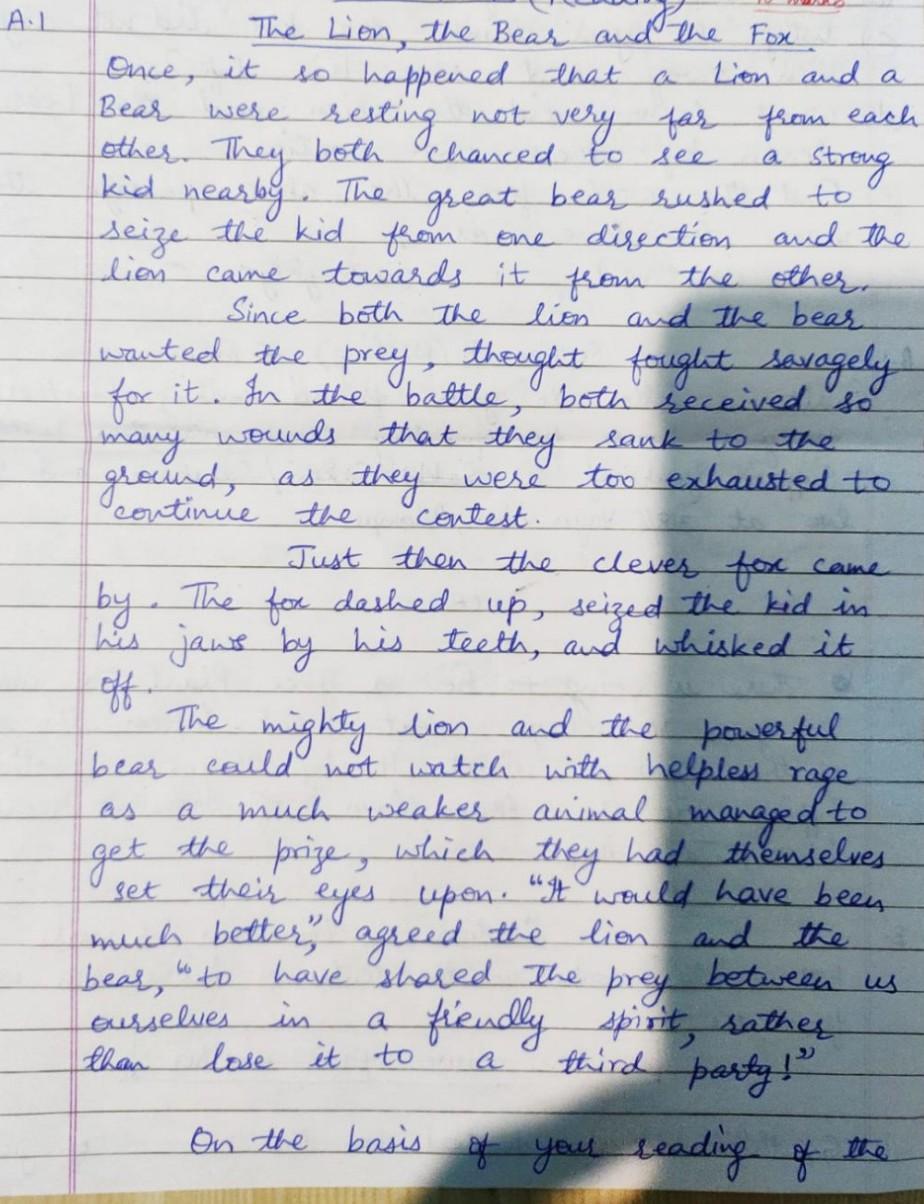 (Reading) 10 marks
A.1 The Lion, the Bear and the Fox.
Once, it so happened that a Lion and a
Bear were resting not very far from each
other. They both chanced to see a strong
kid nearby. The great bear rushed to
seize the kid from one direction and the
lion came towards it from the other.
Since both the lion and the bear
wanted the prey, thought fought savagely
for it. In the battle, both received so
many wounds that they sank to the
ground, as they were too exhausted to
continue the contest.
Just then the clever fox came
by. The fox dashed up, seized the kid in
his jaws by his teeth, and whisked it
off.
The mighty lion and the powerful
bear could not watch with helpless rage
as a much weaker animal managed to
get the prize, which they had themselves
set their eyes upon. "It would have been
much better," agreed the lion and the
bear, "to have shared the prey between us
ourselves in a fiendly spirit, rather
than lose it to a third party!"
On the basis of your reading of the